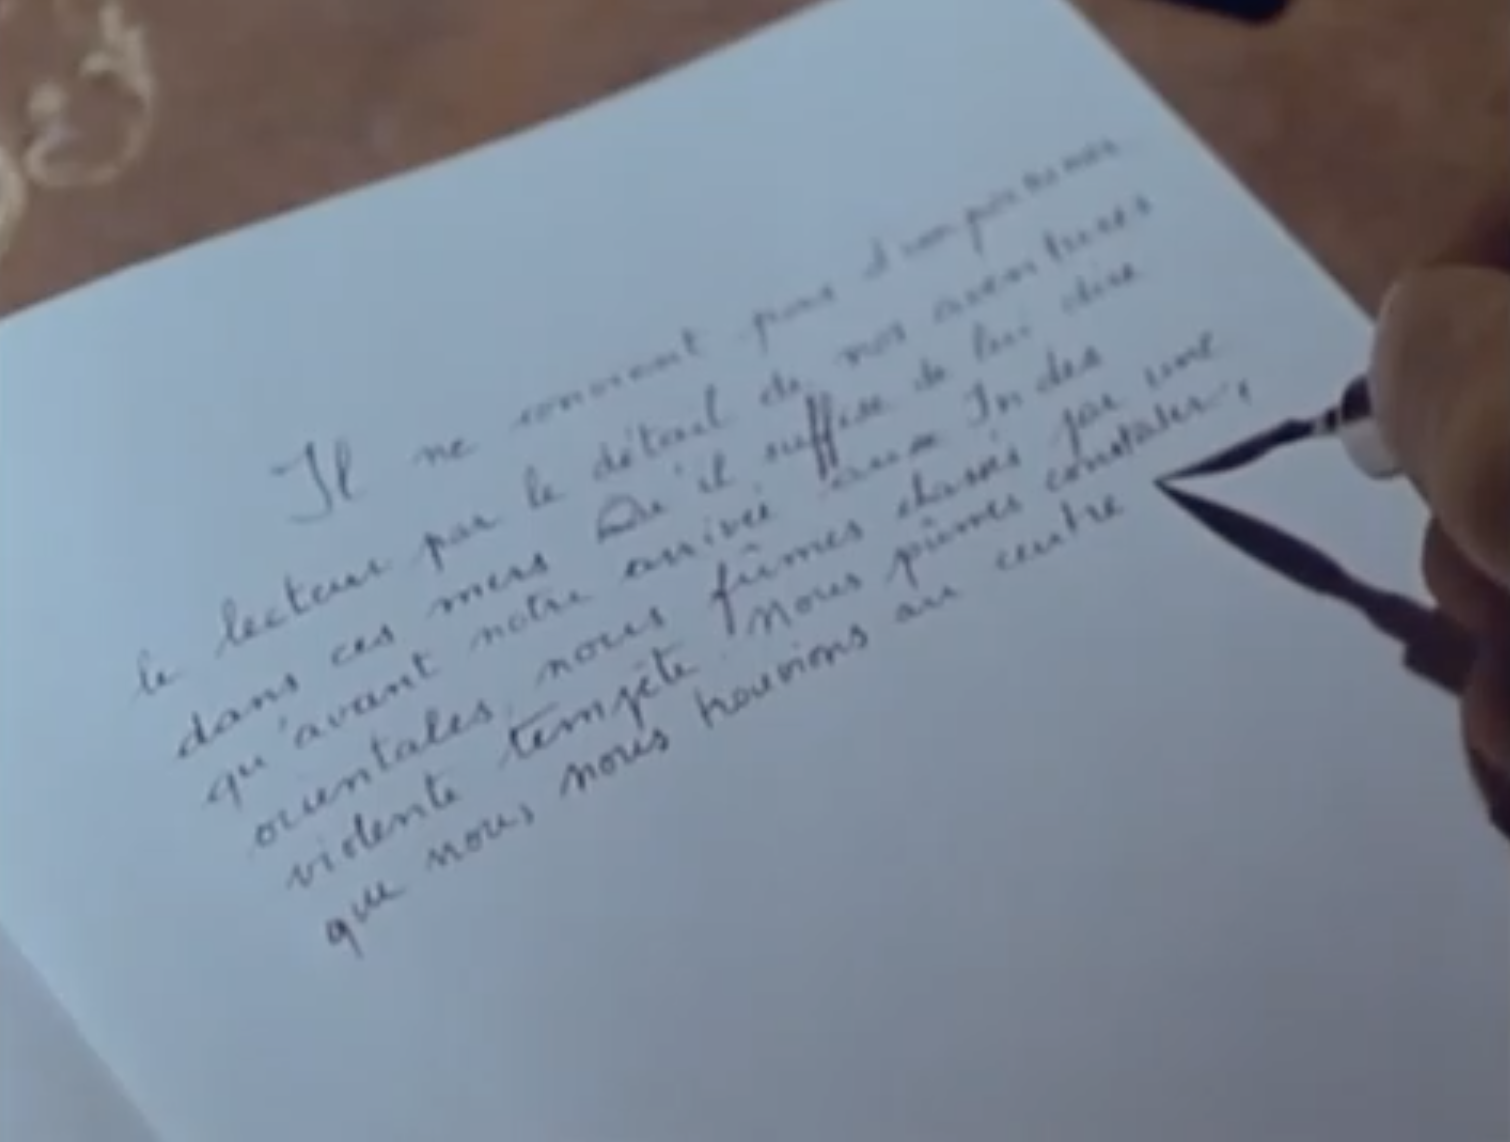 Il ne convient pas d'importuner
le lecteur par le détail de nos aventures
dans ces mers Qu'il suffise de lui dire
qu'avant notre arrivée aux Indes
orientales, nous fûmes chassés par une
violente tempête. Nous pûmes constater,
que nous nous trouvions au centre